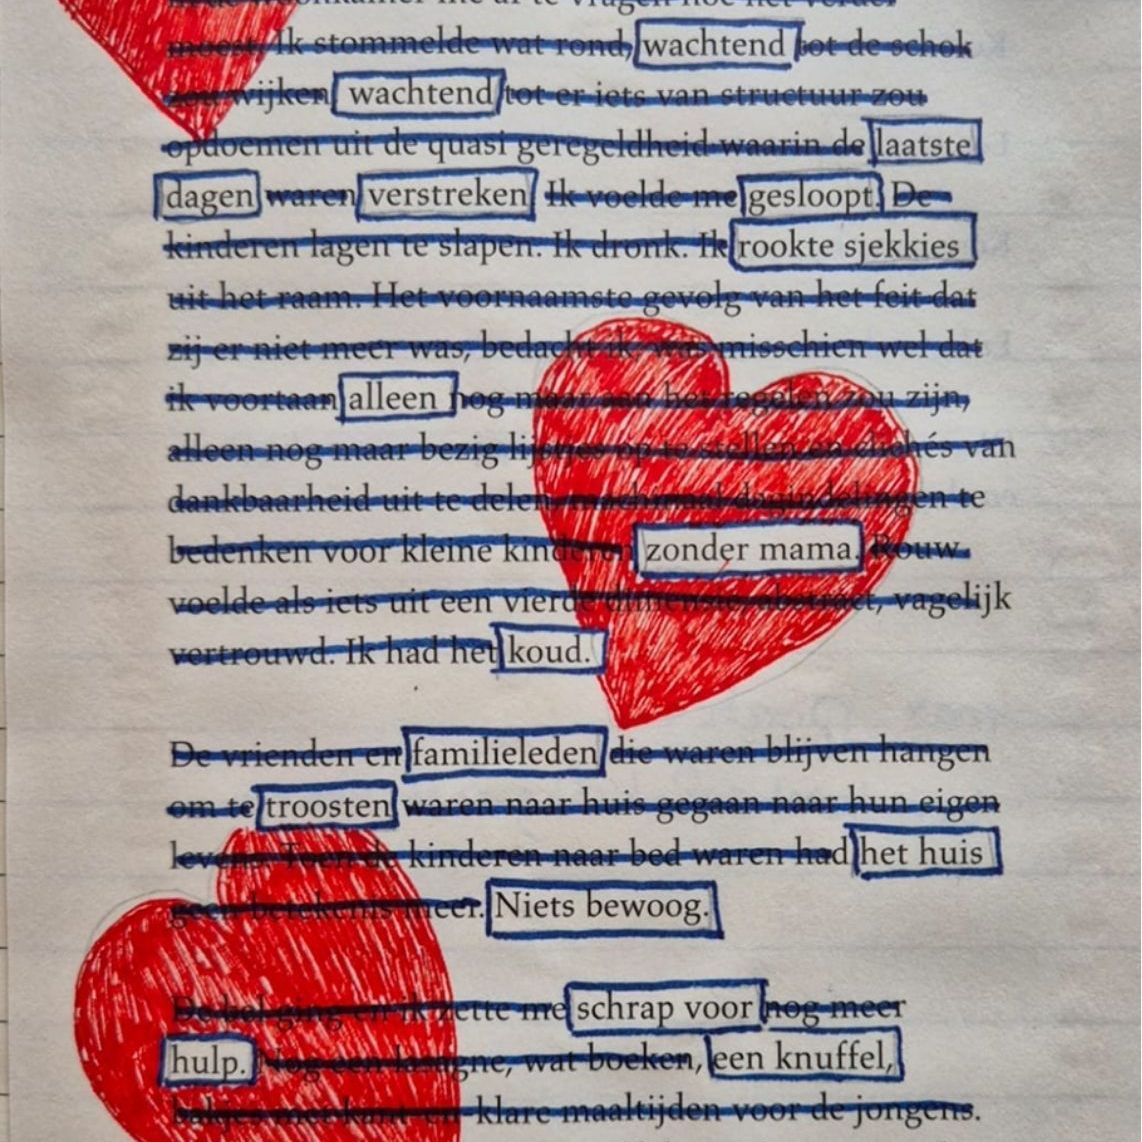 moest. Ik stommelde wat rond, wachtend tot de schok
zou wijken wachtend tot er iets van structuur zou
opdoemen uit de quasi geregeldheid waarin de laatste
dagen waren verstreken Ik voelde me gesloopt. De
kinderen lagen te slapen. Ik dronk. Ik rookte sjekkies
uit het raam. Het voornaamste gevolg van het feit dat
zij er niet meer was, bedacht ik was misschien wel dat
ik voortaan alleen nog maar aan het regelen zou zijn,
alleen nog maar bezig lijstjes op te stellen en clichés van
dankbaarheid uit te delen machinaal dagindelingen te
bedenken voor kleine kinderen zonder mama. Rouw
voelde als iets uit een vierde dimensie abstract, vagelijk
vertrouwd. Ik had het koud.
De vrienden en familieleden die waren blijven hangen
om te troosten waren naar huis gegaan naar hun eigen
levens Toen de kinderen naar bed waren had het huis
geen betekenis meer. Niets bewoog.
De bel ging en ik zette me schrap voor nog meer
hulp. Nog een lasagne, wat boeken, een knuffel,
bakjes met kant en klare maaltijden voor de jongens.